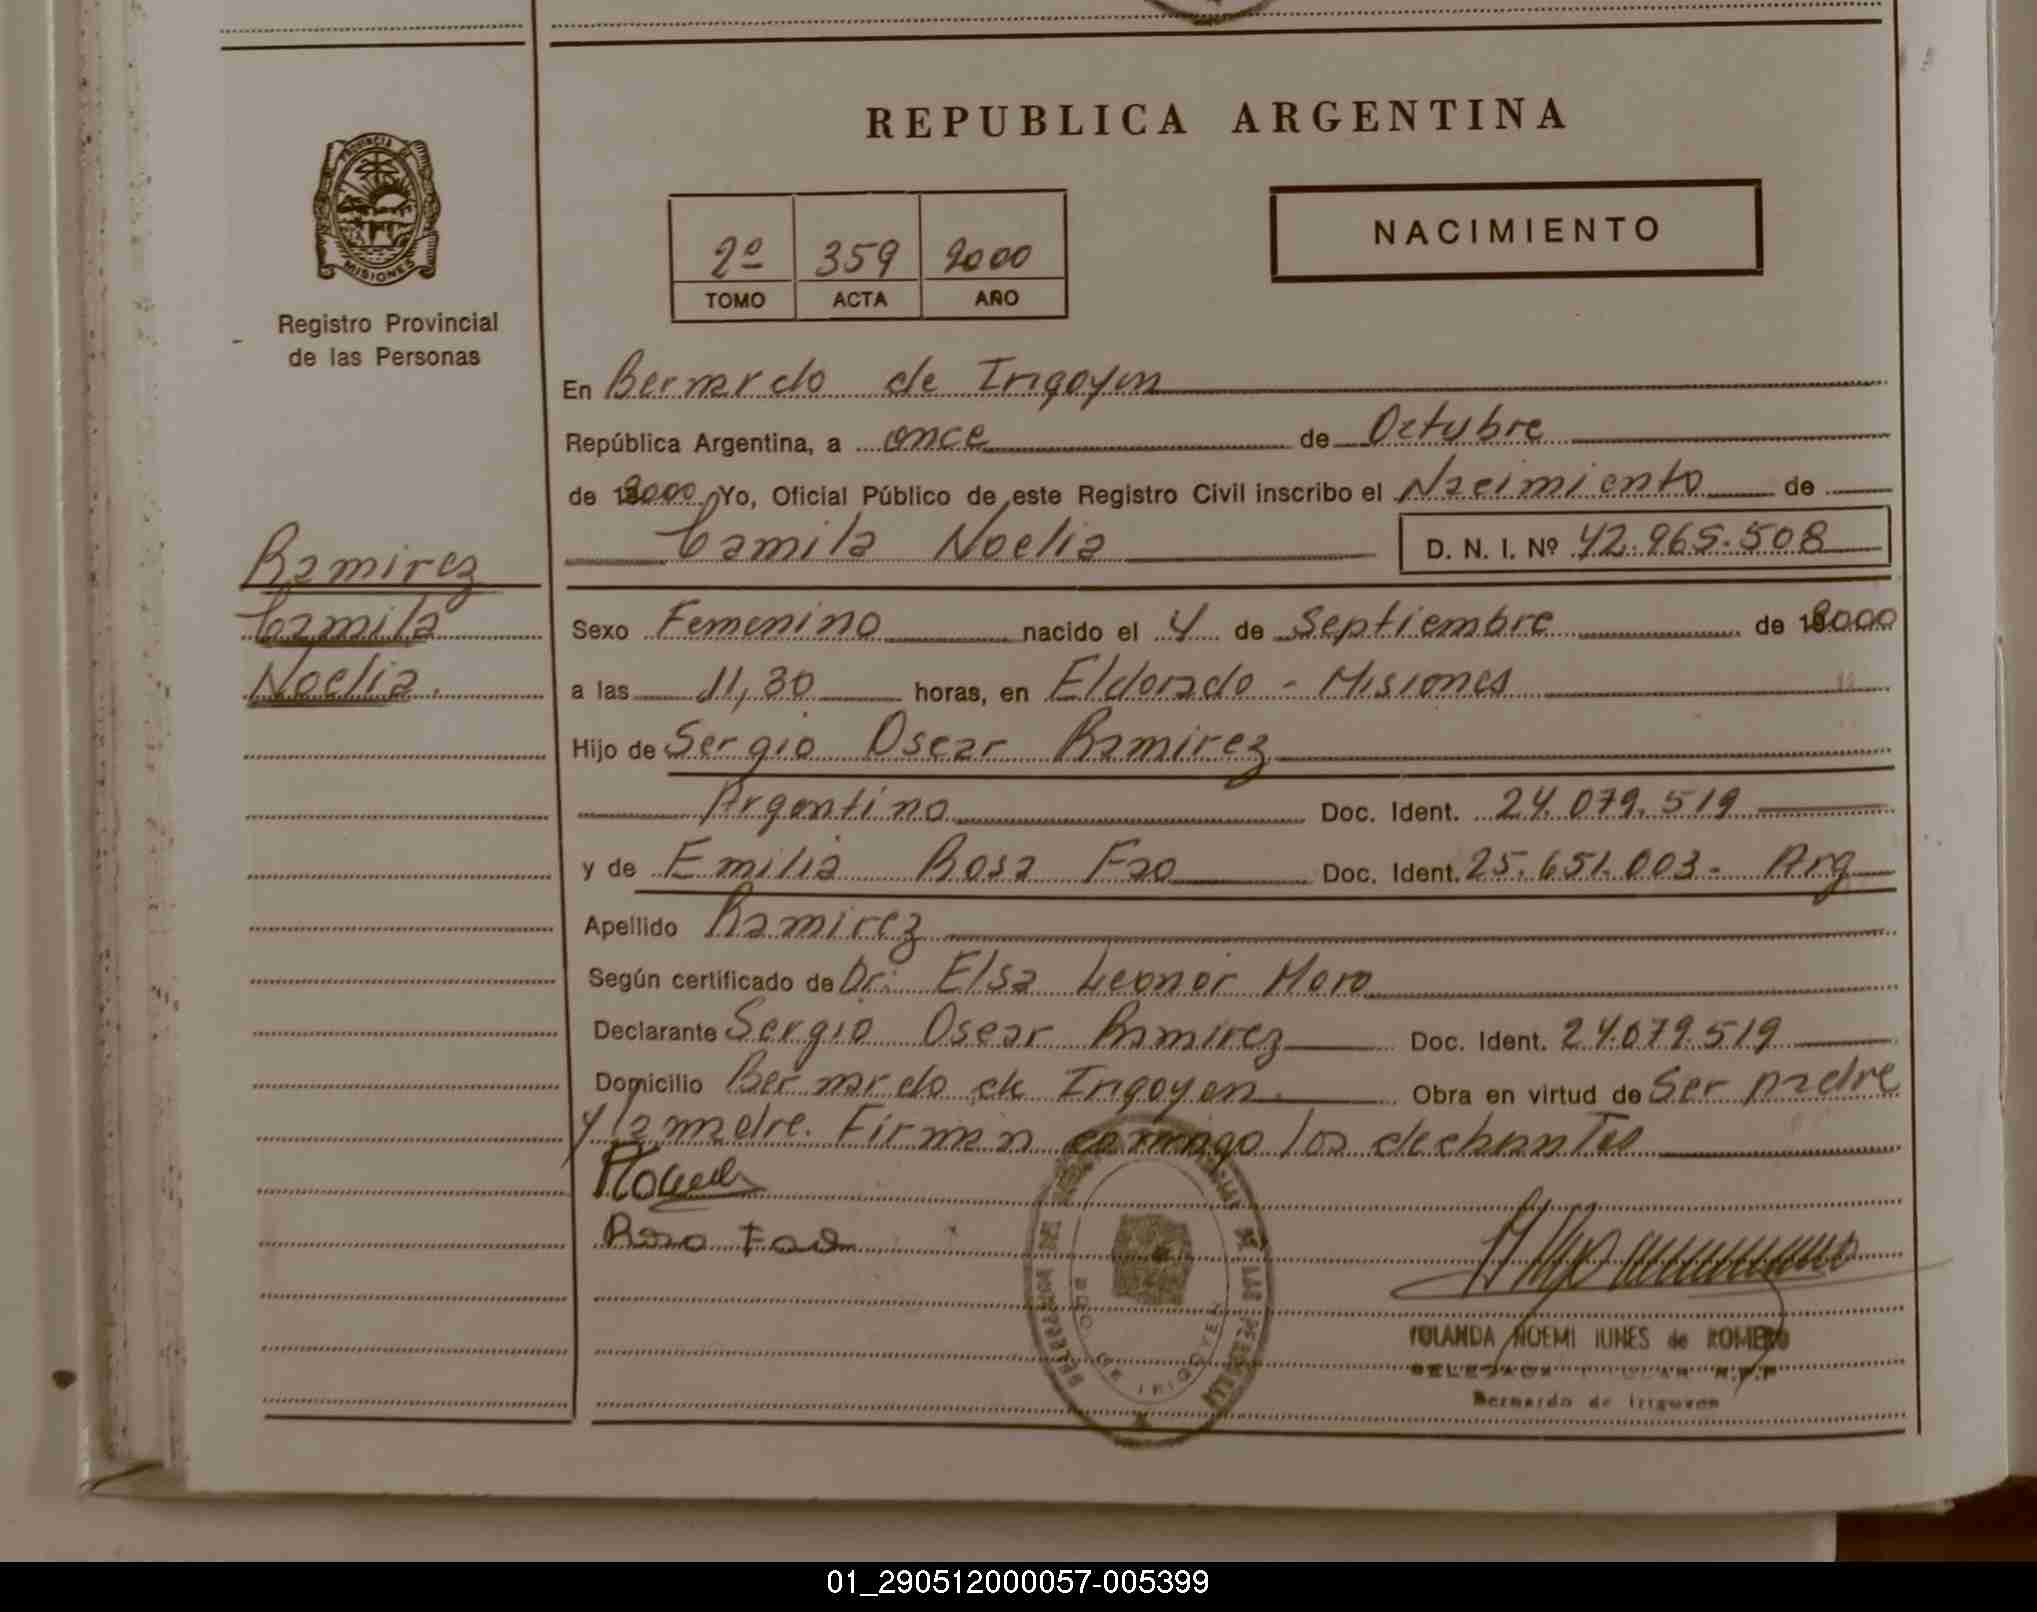 REPUBLICA ARGENTINA
NACIMIENTO
2º 359 2000
TOMO ACTA AÑO
PROVINCIA DE
MISIONES
Registro Provincial
de las Personas
En Bernardo de Irigoyen
República Argentina, a once de Octubre
de 2000 Yo, Oficial Público de este Registro Civil inscribo el Nacimiento de
Camila Noelia D. N. I. Nº 42.965.508
Ramirez
Camila
Noelia.
Sexo Femenino nacido el 4 de Septiembre de 2000
a las 11,30 horas, en Eldorado - Misiones
Hijo de Sergio Oscar Ramirez
Argentino Doc. Ident. 24.079.519
y de Emilia Rosa Fao Doc. Ident. 25.651.003- Arg
Apellido Ramirez
Según certificado de Dr. Elsa Leonor Moro
Declarante Sergio Oscar Ramirez Doc. Ident. 24.079.519
Domicilio Bernardo de Irigoyen. Obra en virtud de Ser padre
y la madre. Firman conmigo los declarantes
Rosa Fao
BDO. DE IRIGOYEN
YOLANDA NOEMI IUNES de ROMERO
DELEGADA TITULAR R.P.P
Bernardo de Irigoyen
01_290512000057-005399